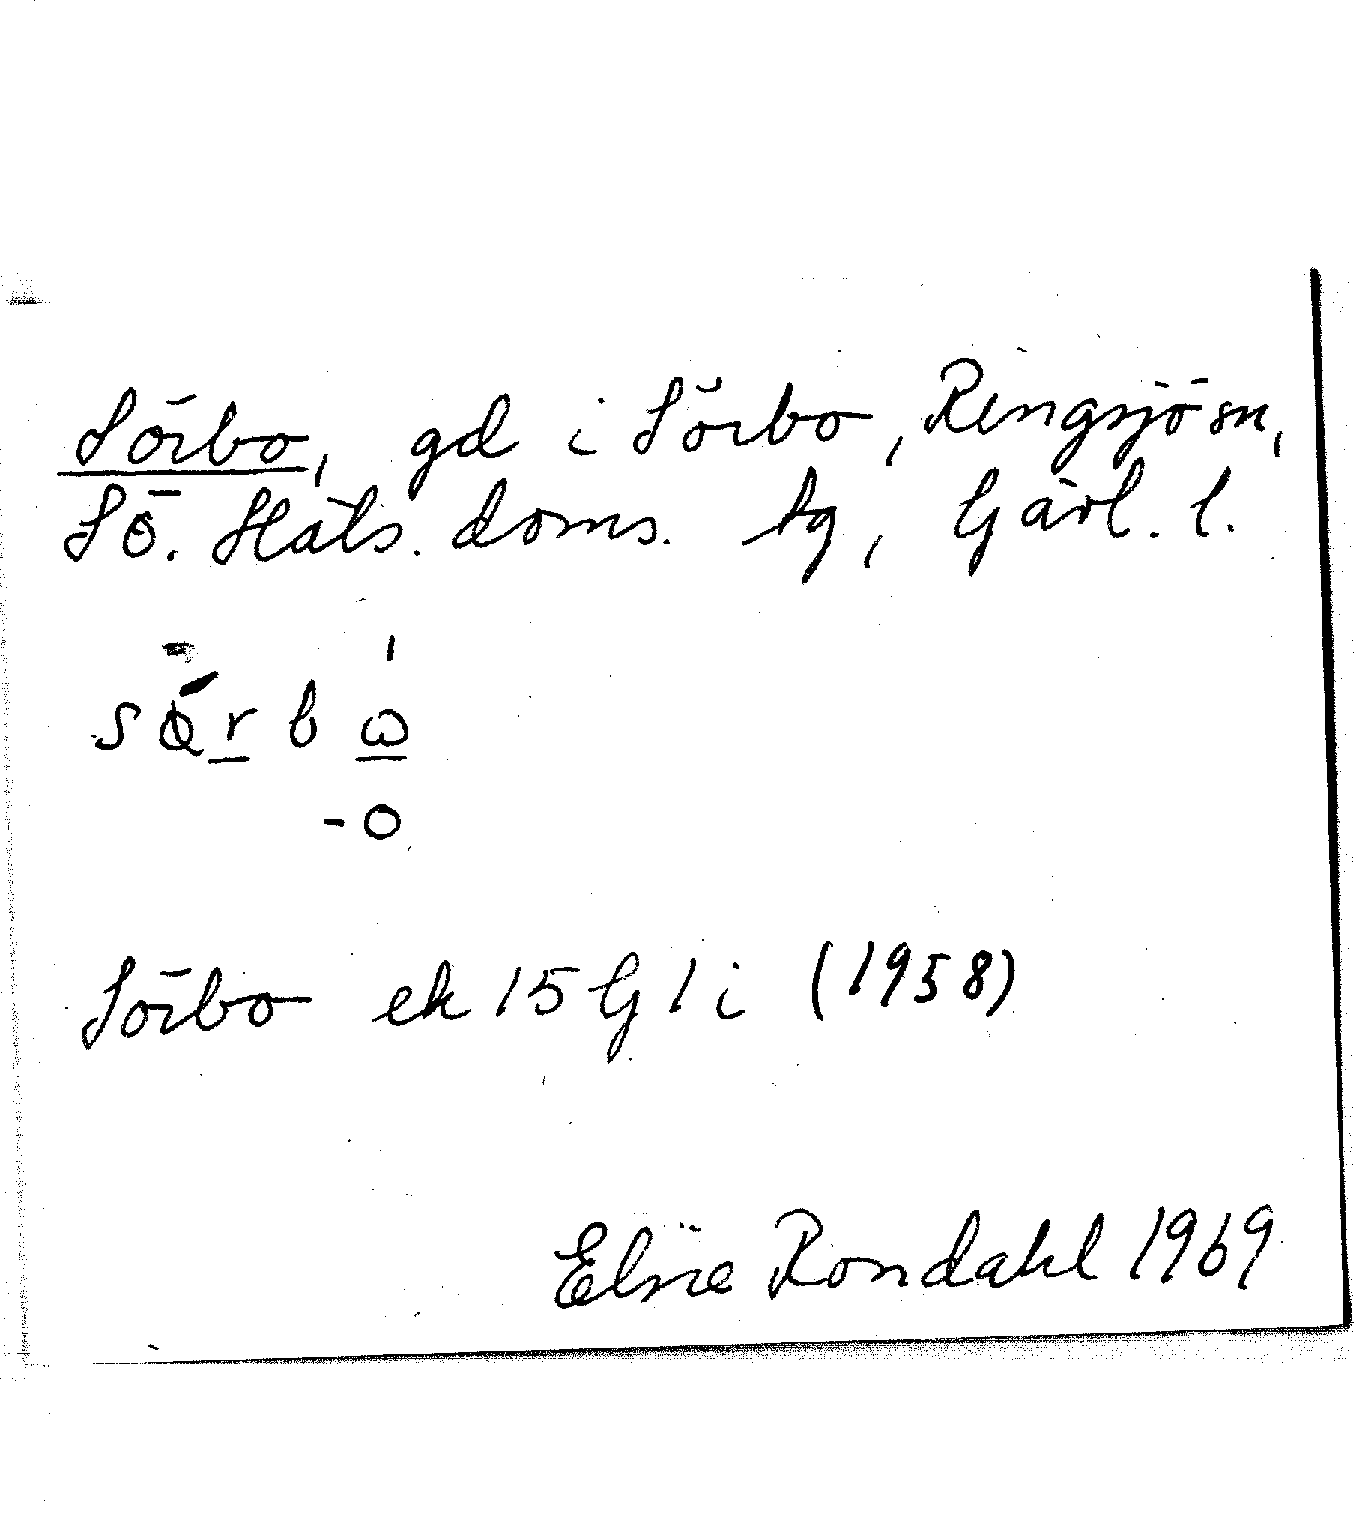 Sörbo, gd i Sörbo, Rengsjö sn,
Sö. Häls. doms. tg, Gävl. l.
Sörbo ek 15 G 1 i (1958)
Elsie Rondahl 1969